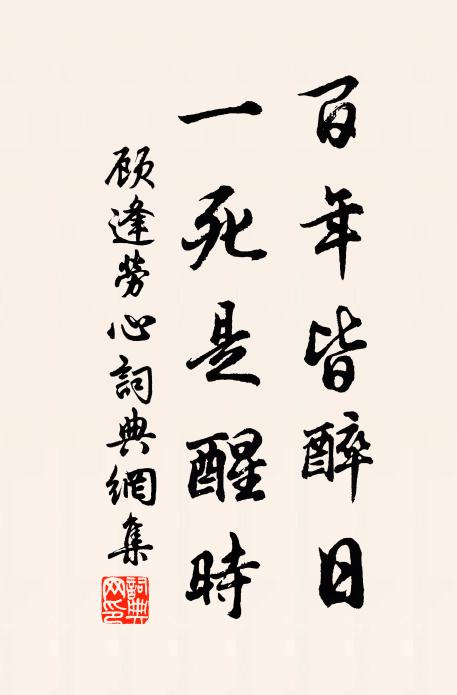 百年皆醉日
一死是醒時
顾逢勞心詞典網集
詞典網印